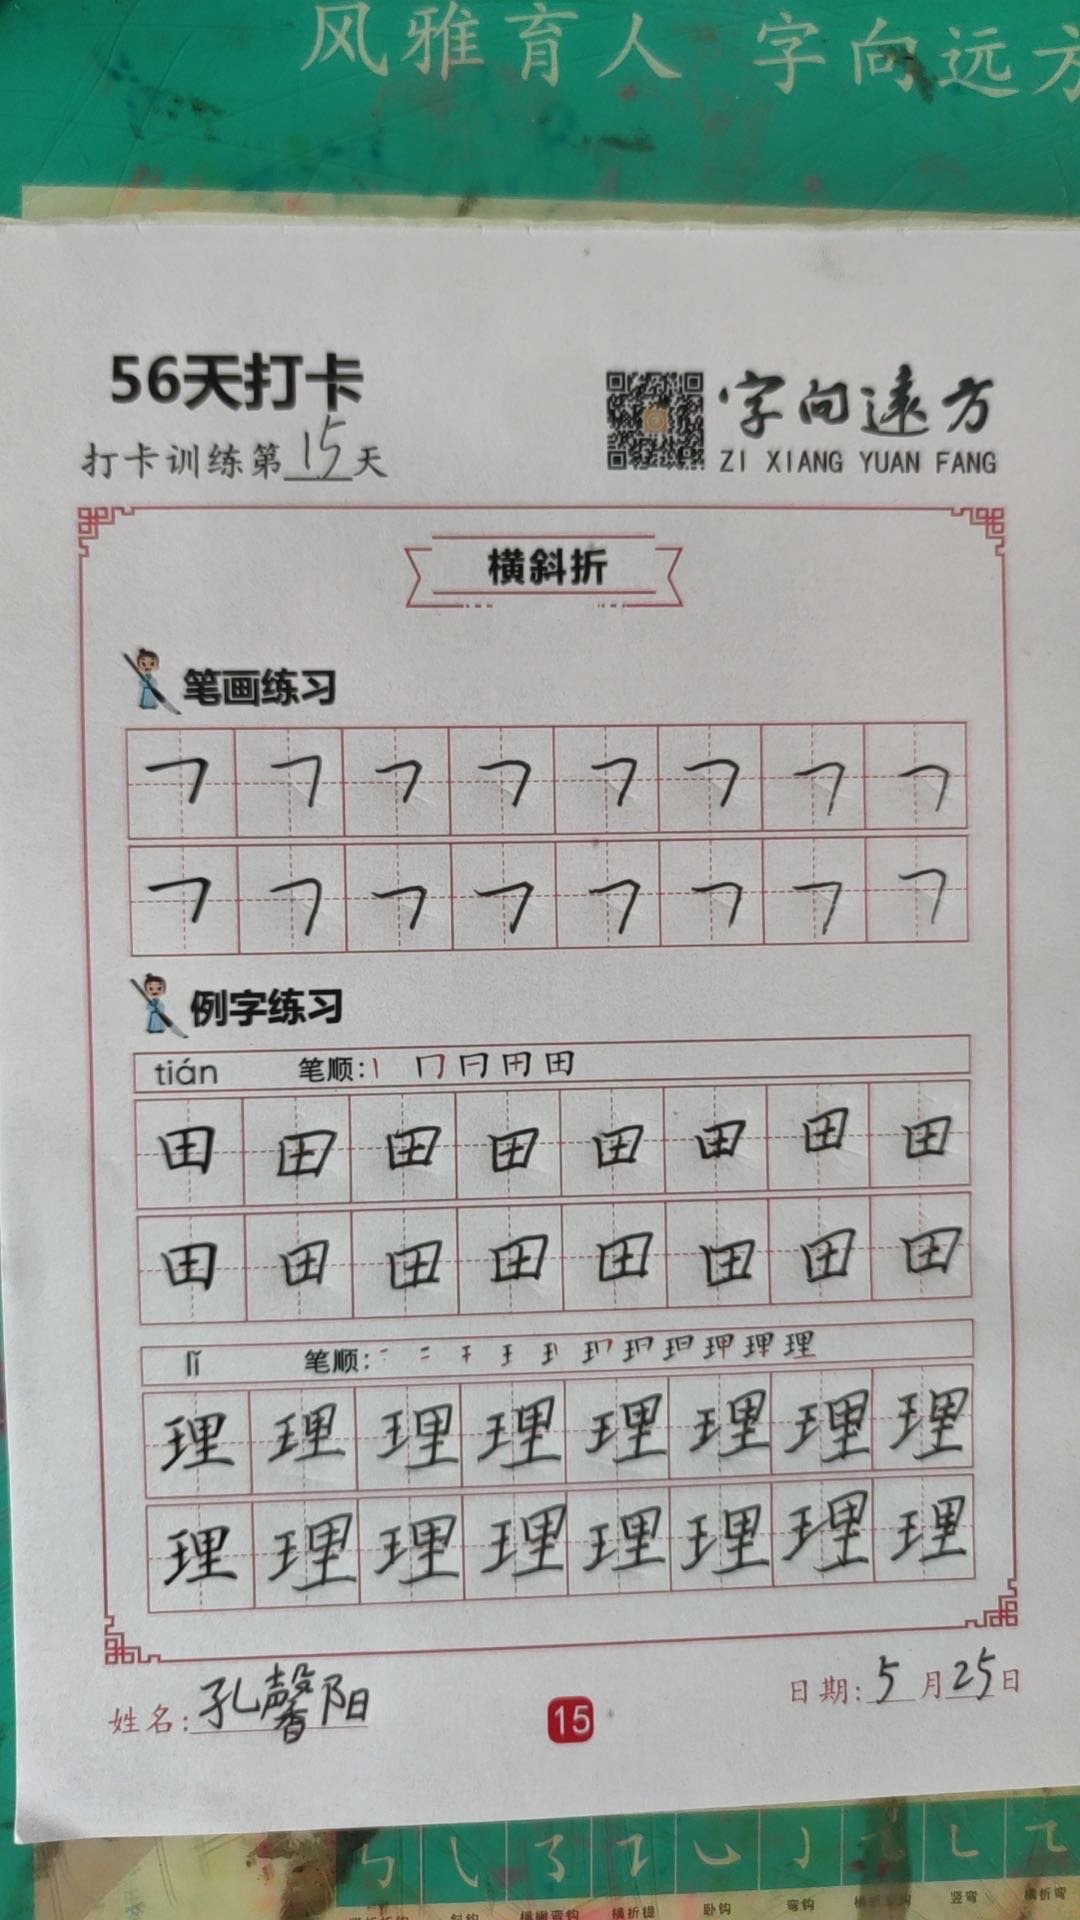 风雅育人 字向远方
56天打卡
打卡训练第15天
字向遠方
ZI XIANG YUAN FANG
横斜折
笔画练习
例字练习
tián 笔顺:
田 田 田 田 田 田 田 田
田 田 田 田 田 田 田 田
lǐ 笔顺:
理 理 理 理 理 理 理 理
理 理 理 理 理 理 理 理
姓名:孔馨阳
15
日期:5月25日
斜钩 横撇弯钩 横折提 卧钩 弯钩 竖弯 横折弯